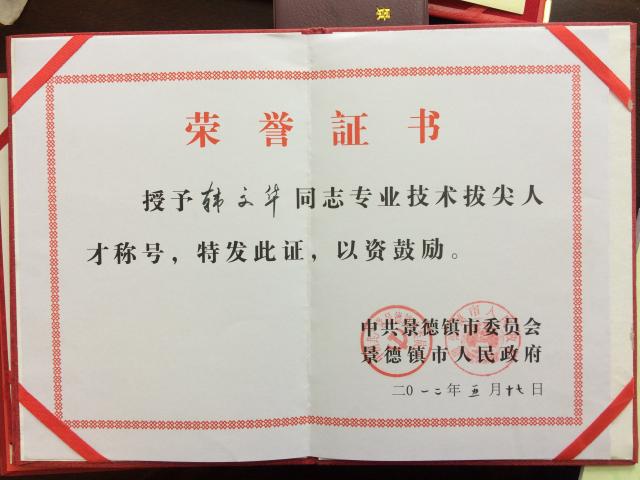 荣誉証书
授予韩文华同志专业技术拔尖人
才称号，特发此证，以资鼓励。
中共景德镇市委员会
景德镇市人民政府
二0一二年五月十七日